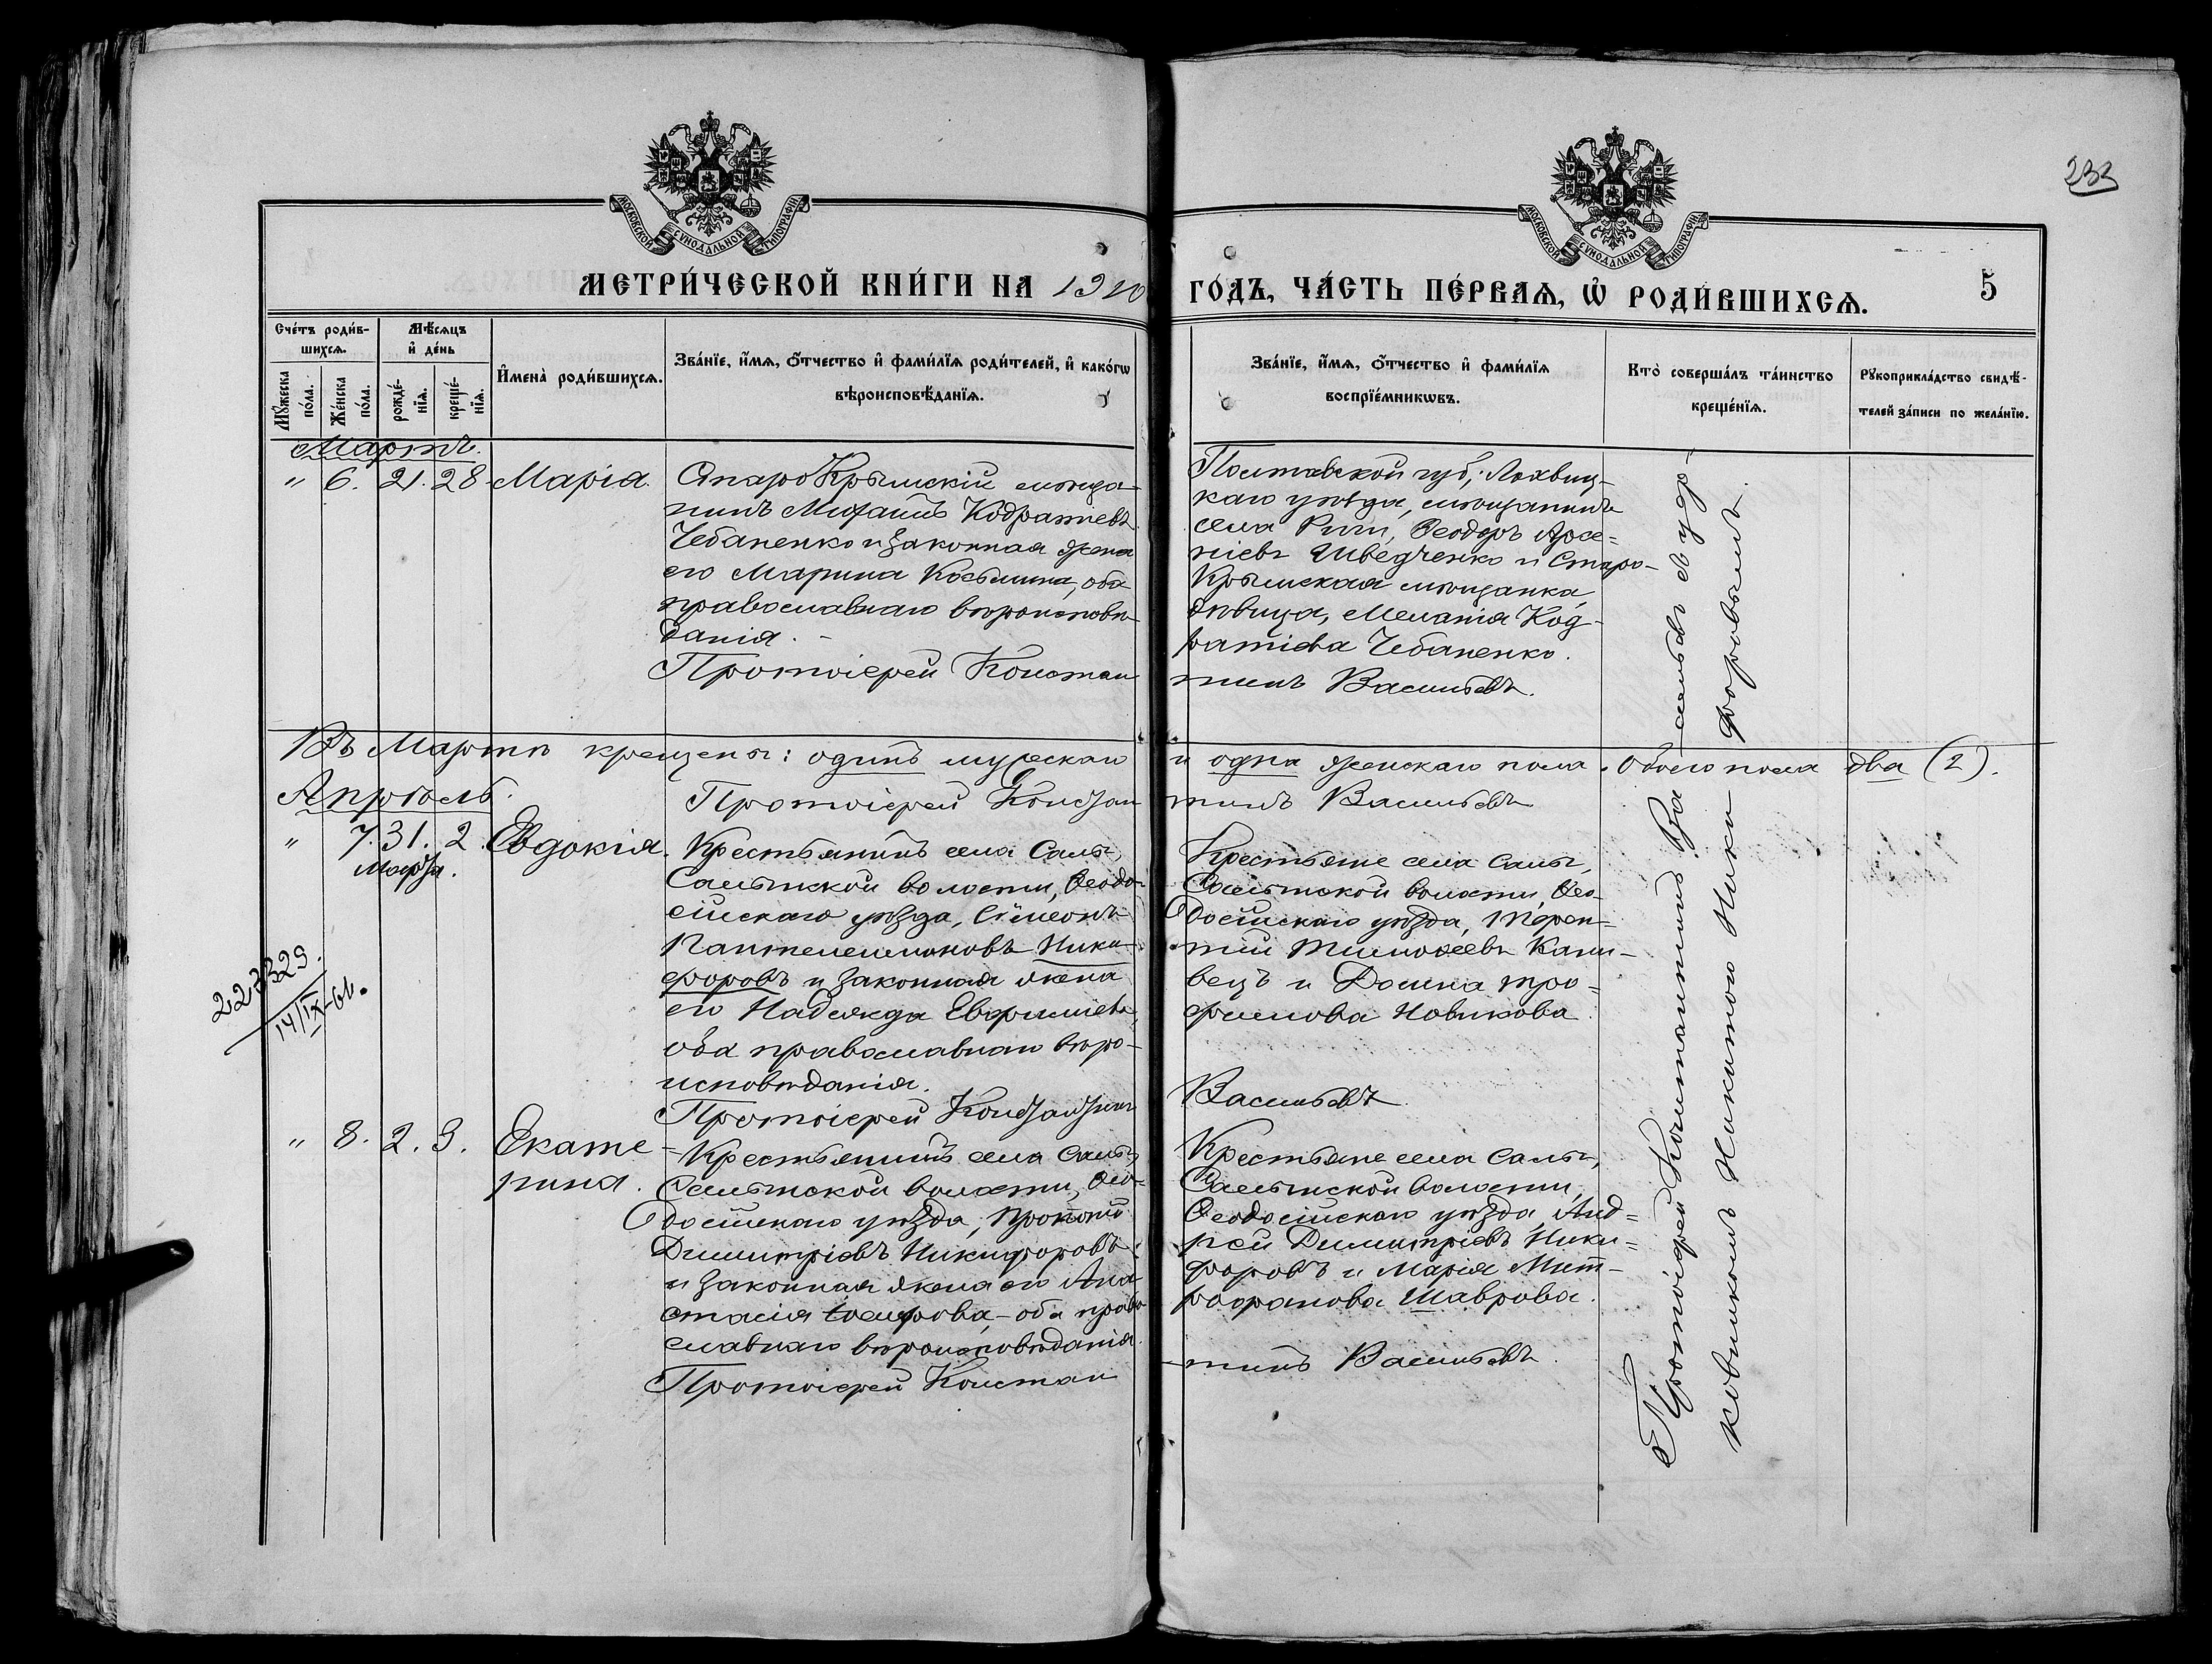 233
МОСКОВСКОЙ СѴНОДАЛЬНОЙ ТИПОГРАФІИ
МОСКОВСКОЙ СѴНОДАЛЬНОЙ ТИПОГРАФІИ
МЕТРИ́ЧЕСКОЙ КНИ́ГИ НА 1910
ГО́ДЪ, ЧА́СТЬ ПЕ́РВАѦ, Ѡ҆ РОДИ́ВШИХСѦ.
5
Сче́тъ роди́в-
шихсѧ.
Мѣ́сѧцъ
и҆ де́нь
Мꙋ́жеска
по́ла.
Же́нска
по́ла.
рожде́-
нїѧ.
креще́-
нїѧ.
И҆мена̀ роди́вшихсѧ.
Зва́нїе, и҆́мѧ, ѻ҆́тчество и҆ фами́лїѧ роди́телей, и҆ како́гѡ
вѣроисповѣ́данїѧ.
Зва́нїе, и҆́мѧ, ѻ҆́тчество и҆ фами́лїѧ
воспрїе́мникѡвъ.
Кто̀ соверша́лъ та́инство
креще́нїѧ.
Рꙋкоприкла́дство свидѣ́-
телей за́писи по жела́нїю.
Мартъ.
" 6. 21. 28. Марія.
СтароКрымскій мѣща-
нинъ Михаилъ Кодратіевъ
Чебаненко и законная жена
его Марина Косьмина, оба
православнаго вѣроисповѣ-
данія. -
Протоіерей Констан
Полтавской губ., Лохвиц-
каго уѣзда, мѣщанинъ
села Риги, Ѳеодоръ Арсе-
ніевъ Шведченко и Старо-
Крымская мѣщанка,
дѣвица, Меланія Код-
ратіева Чебаненко.
тинъ Васильевъ.
Въ Мартѣ крещены: одинъ мужскаго
и одна женскаго пола. Обоего пола два (2).
Протоіерей Констан
тинъ Васильевъ
Апрѣль.
" 7. 31. 2. Евдокія.
Марта.
Крестьянинъ села Салы,
Салынской волости, Ѳеодо-
сійскаго уѣзда, Сѷмеонъ
Пантелеимоновъ Ники-
форовъ и законная жена
его Надежда Евфиміева,
оба православнаго вѣро-
исповѣданія.
Протоіерей Константинъ
Крестьяне села Салы,
Салынской волости, Ѳео-
досійскаго уѣзда, Терен-
тій Тимоѳеевъ Кани-
вецъ и Домна Тро-
фимова Новикова.
Васильевъ
223329.
14/IX-61.
" 8. 2. 3. Екате-
рина.
Крестьянинъ села Салы,
Салынской волости, Ѳео-
досійскаго уѣзда, Прокопій
Димитріевъ Никифоровъ
и законная жена его Ана-
стасія Іосифова, - оба право
славнаго вѣроисповѣданія.
Протоіерей Констан
Крестьяне села Салы,
Салынской волости,
Ѳеодосійскаго уѣзда, Анд-
рей Димитріевъ Ники-
форовъ и Марія Мит-
рофанова Шаврова.
-тинъ Васильевъ.
Протоіерей Константинъ Васильевъ съ удр-
ковникомъ Никитою Никифоровымъ.